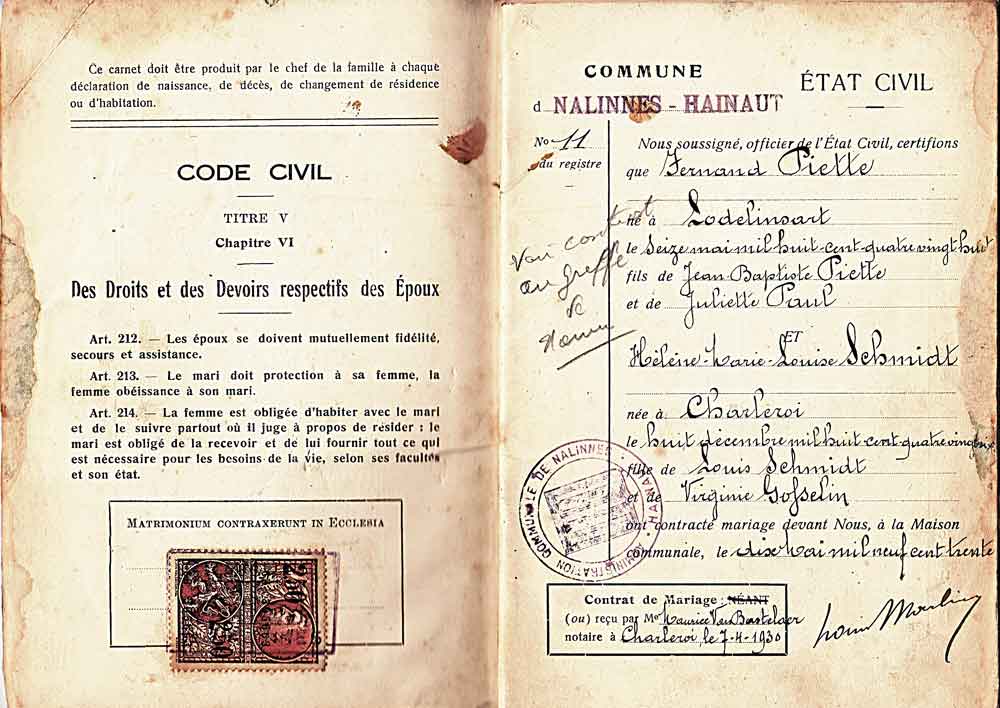 Ce carnet doit être produit par le chef de la famille à chaque
déclaration de naissance, de décès, de changement de résidence
ou d'habitation.
CODE CIVIL
TITRE V
Chapitre VI
Des Droits et des Devoirs respectifs des Époux
Art. 212. — Les époux se doivent mutuellement fidélité,
secours et assistance.
Art. 213. — Le mari doit protection à sa femme, la
femme obéissance à son mari.
Art. 214. — La femme est obligée d'habiter avec le mari
et de le suivre partout où il juge à propos de résider : le
mari est obligé de la recevoir et de lui fournir tout ce qui
est nécessaire pour les besoins de la vie, selon ses facultés
et son état.
MATRIMONIUM CONTRAXERUNT IN ECCLESIA
COMMUNE
d NALINNES - HAINAUT
ÉTAT CIVIL
No 11
du registre
Nous soussigné, officier de l'État Civil, certifions
que Fernand Piette
né à Lodelinsart
le Seize mai mil huit-cent-quatre vingt huit
fils de Jean Baptiste Piette
et de Juliette Paul
ET
Hélène-Marie-Louise Schmidt
née à Charleroi
le huit décembre mil huit-cent-quatre
fille de Louis Schmidt
et de Virginie Gosselin
ont contracté mariage devant Nous, à la Maison
communale, le dix Mai mil neuf cent trente
Voir contrat
au greffe
de
ADMINISTRATION COMMUNALE DE NALINNES - HAINAUT
Contrat de Mariage : NÉANT
(ou) reçu par Me Maurice Van
notaire à Charleroi, le 7-4-1930
Louis Moulin